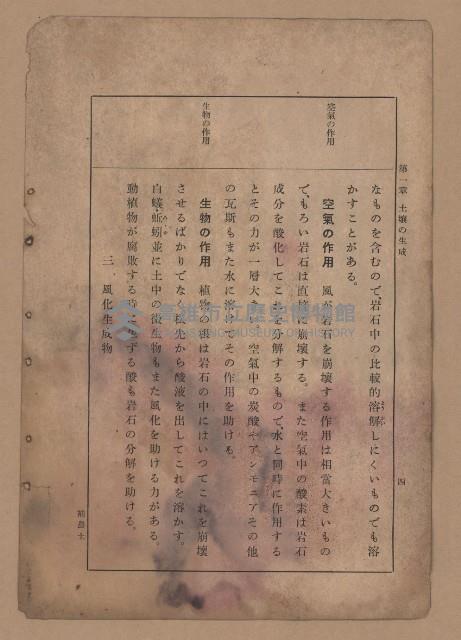 第一章 土壤の生成
四
空氣の作用
生物の作用
なものを含むので、岩石中の比較的溶解しにくいものでも溶
かすことがある。
空氣の作用 風が岩石を崩壞する作用は相當大きいもの
で、もろい岩石は直接に崩壞する。また空氣中の酸素は岩石
成分を酸化してこれを分解するもので、水と同時に作用する
とその力が一層大きい。空氣中の炭酸やアンモニアその他
の瓦斯もまた水に溶けてその作用を助ける。
生物の作用 植物の根は岩石の中にはいつてこれを崩壞
させるばかりでなく、根先から酸液を出してこれを溶かす。
白蟻・蚯蚓並に土中の微生物もまた風化を助ける力がある。
動植物が腐敗する時に生ずる酸も岩石の分解を助ける。
三、風化生成物
高雄市立歷史博物館
KAOHSIUNG MUSEUM OF HISTORY